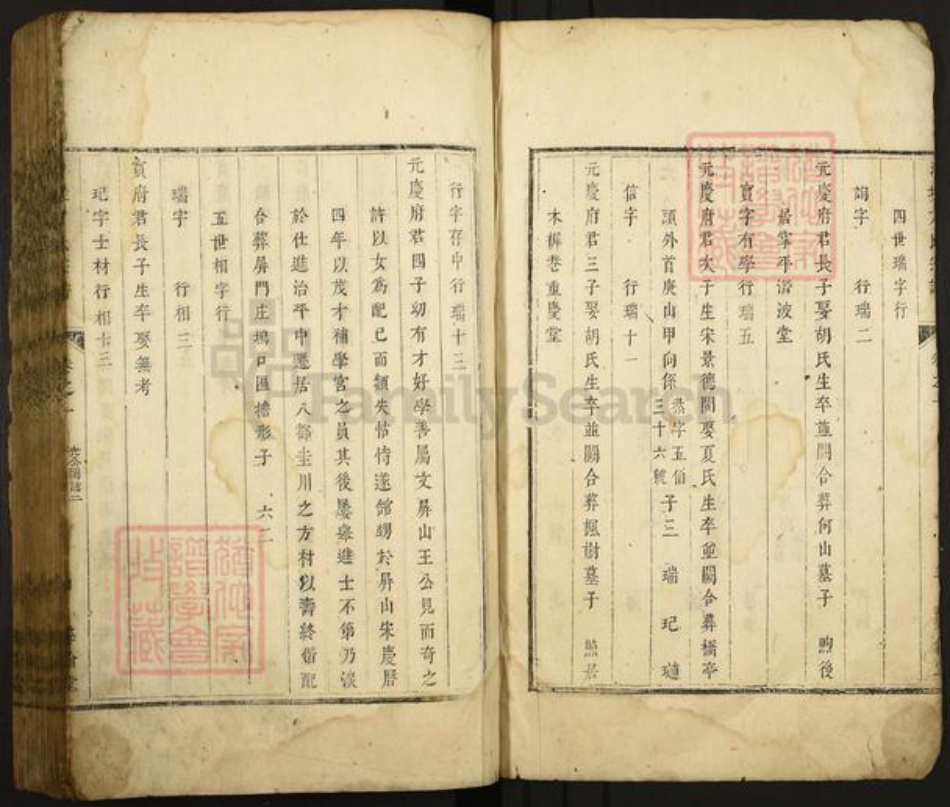 四世瑞字行
詞字 行瑞二
元慶府君長子娶胡氏生卒並闕合葬何山墓子 煦後
居常平滑波堂
寶字有學行瑞五
元慶府君次子生宋景德間娶夏氏生卒並闕合葬橋亭
頭外首庚山甲向係恭字五佰三十六號子三 瑞 玘 璉
信字 行瑞十一
元慶府君三子娶胡氏生卒並闕合葬楓樹墓子 照居
木樨巷重慶堂
行字存中行瑞十三
元慶府君四子幼有才好學善屬文屏山王公見而奇之
許以女為配已而額失怙恃遂館甥於屏山宋慶曆
四年以茂才補學宮之員其後屢舉進士不第乃淡
於仕進治平中遷居八都圭川之方村以壽終偕配
合葬屏門庄塢口匾擔形子 六二
五世相字行
瑞字 行相三
寶府君長子生卒娶無考
玘字士材行相十三
FamilySearch
譜學會
收藏
譜學會
收藏